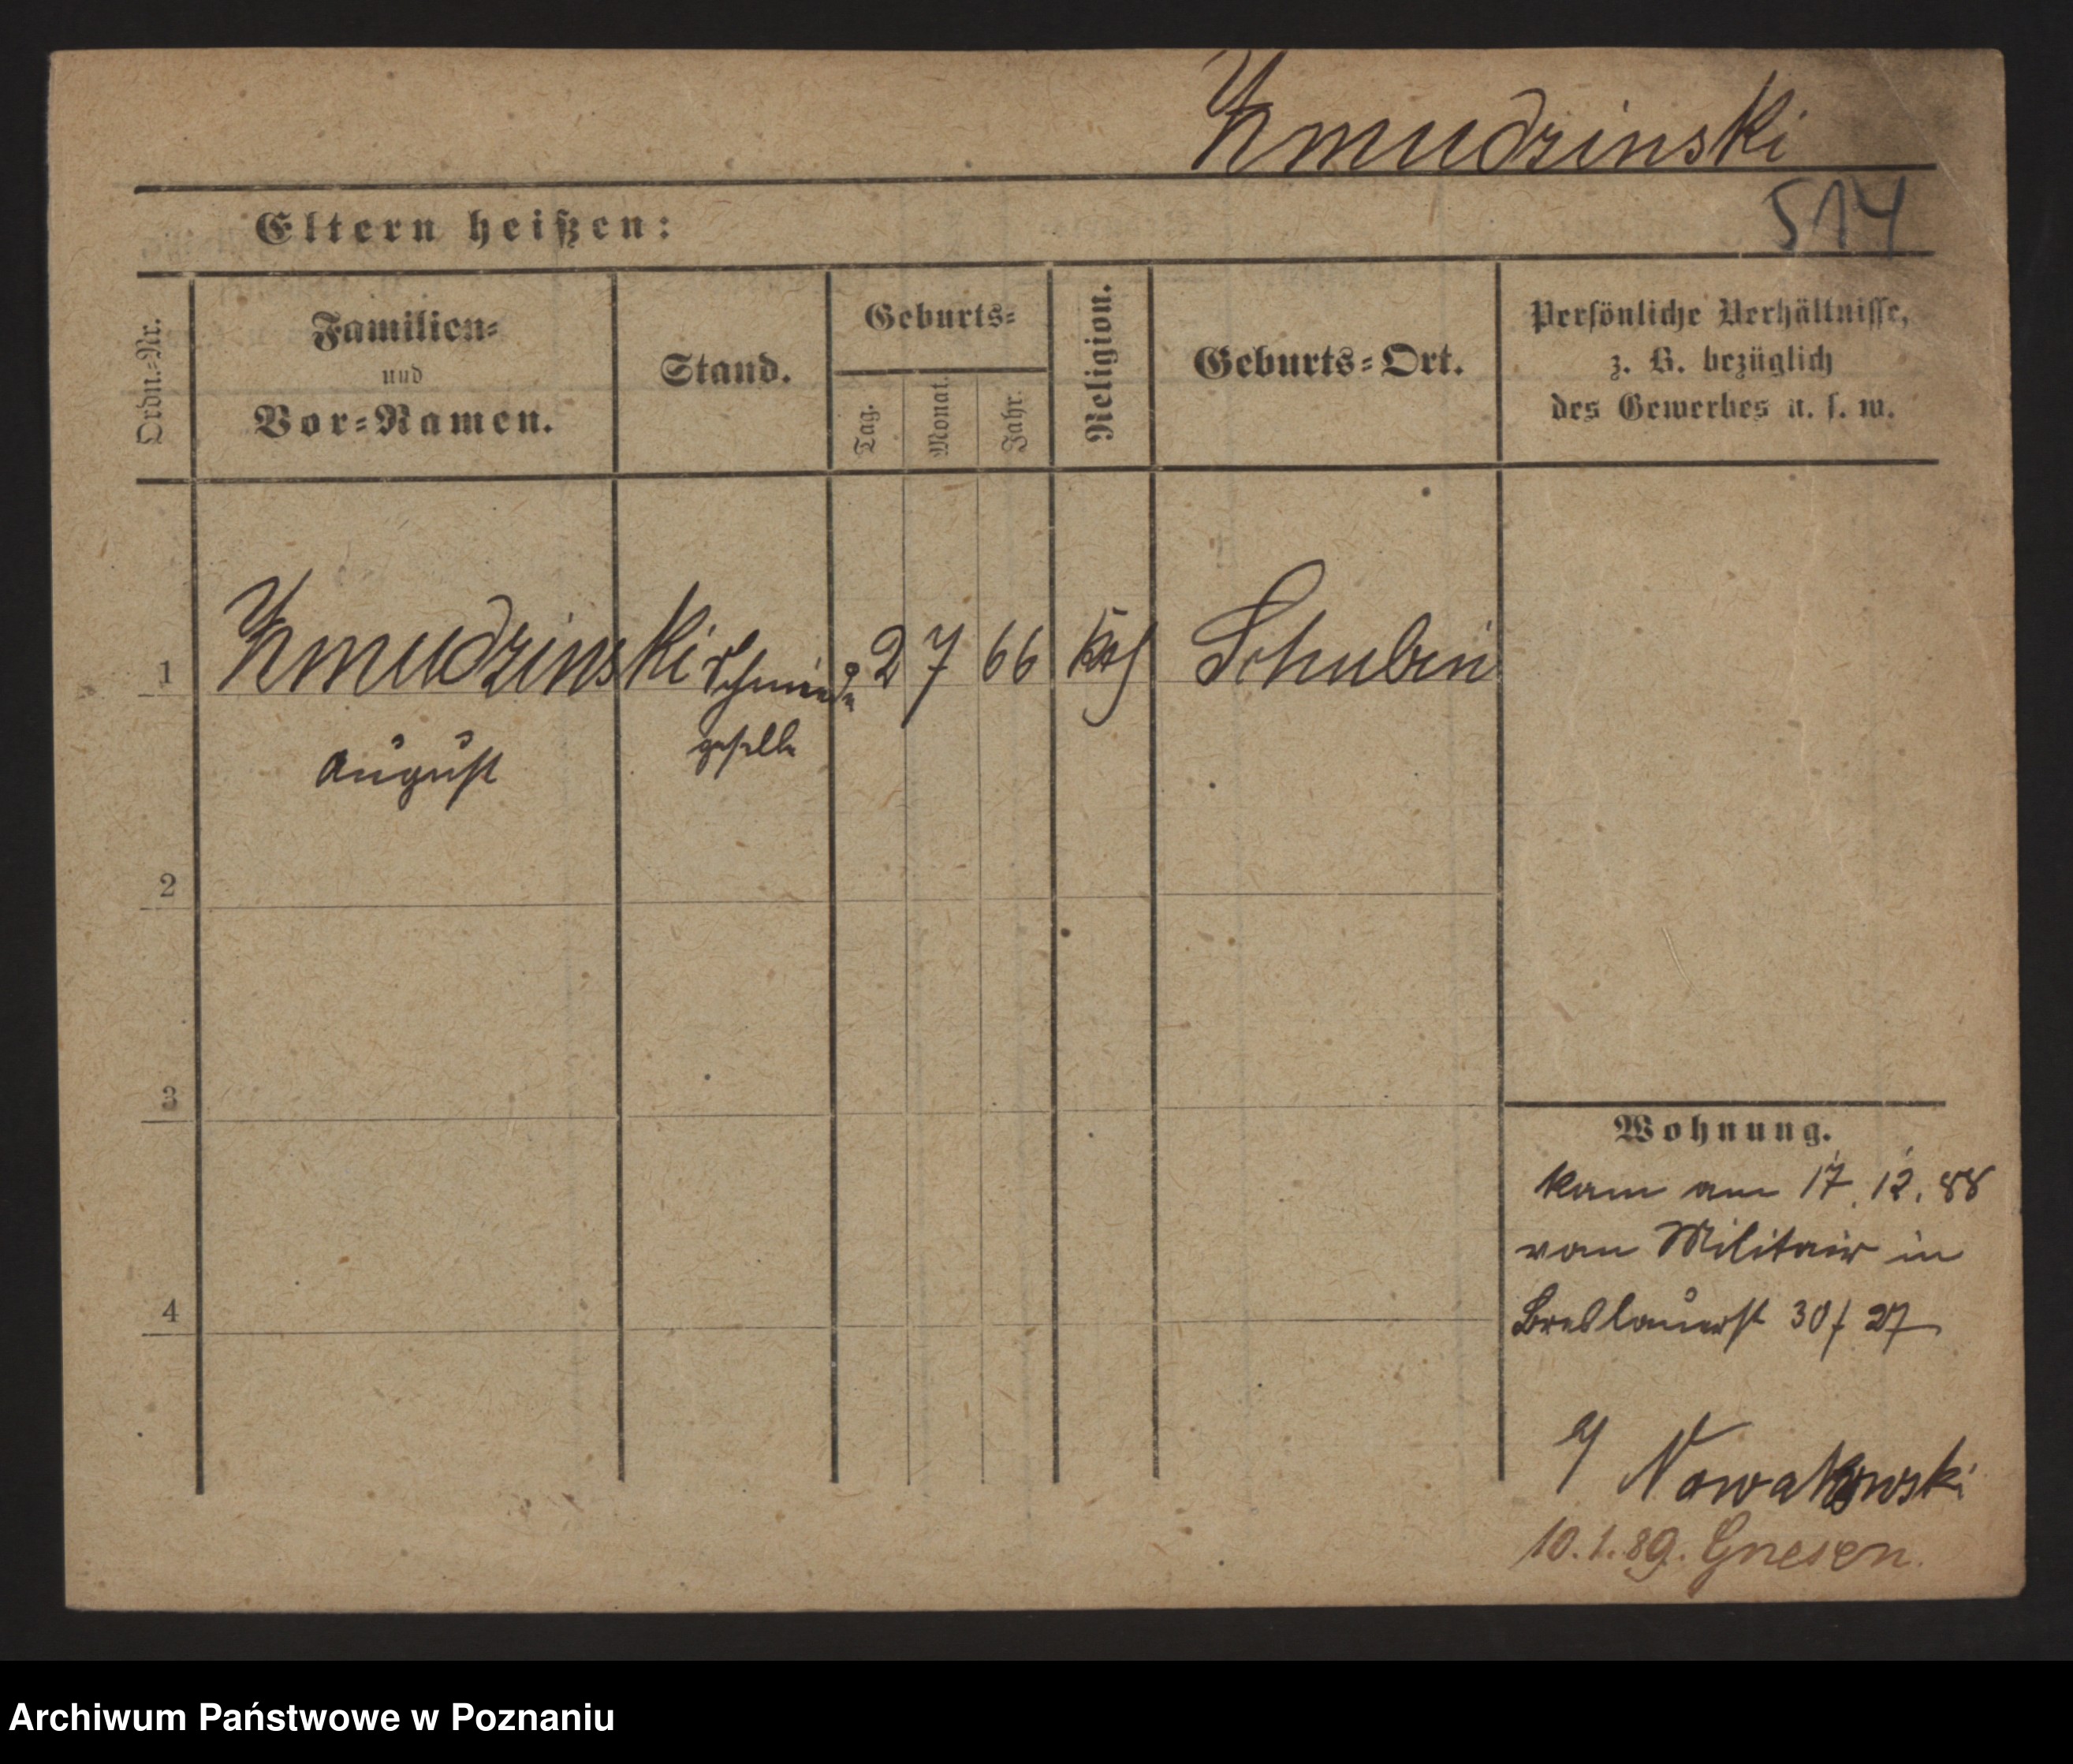 Zmudzinski
514
Eltern heißen:
Ordn.-Nr.
Familien-
und
Vor-Namen.
Stand.
Geburts-
Tag.
Monat.
Jahr.
Religion.
Geburts-Ort.
Persönliche Verhältnisse,
z. B. bezüglich
des Gewerbes u. s. w.
1 Zmudzinski Schmiede 2 7 66 kath Schubin
August geselle
2
3
4
Wohnung.
kam am 17.12.88
vom Militair in
Breslauerst 30/27
Nowakowski
10.1.89. Gnesen.
Archiwum Państwowe w Poznaniu